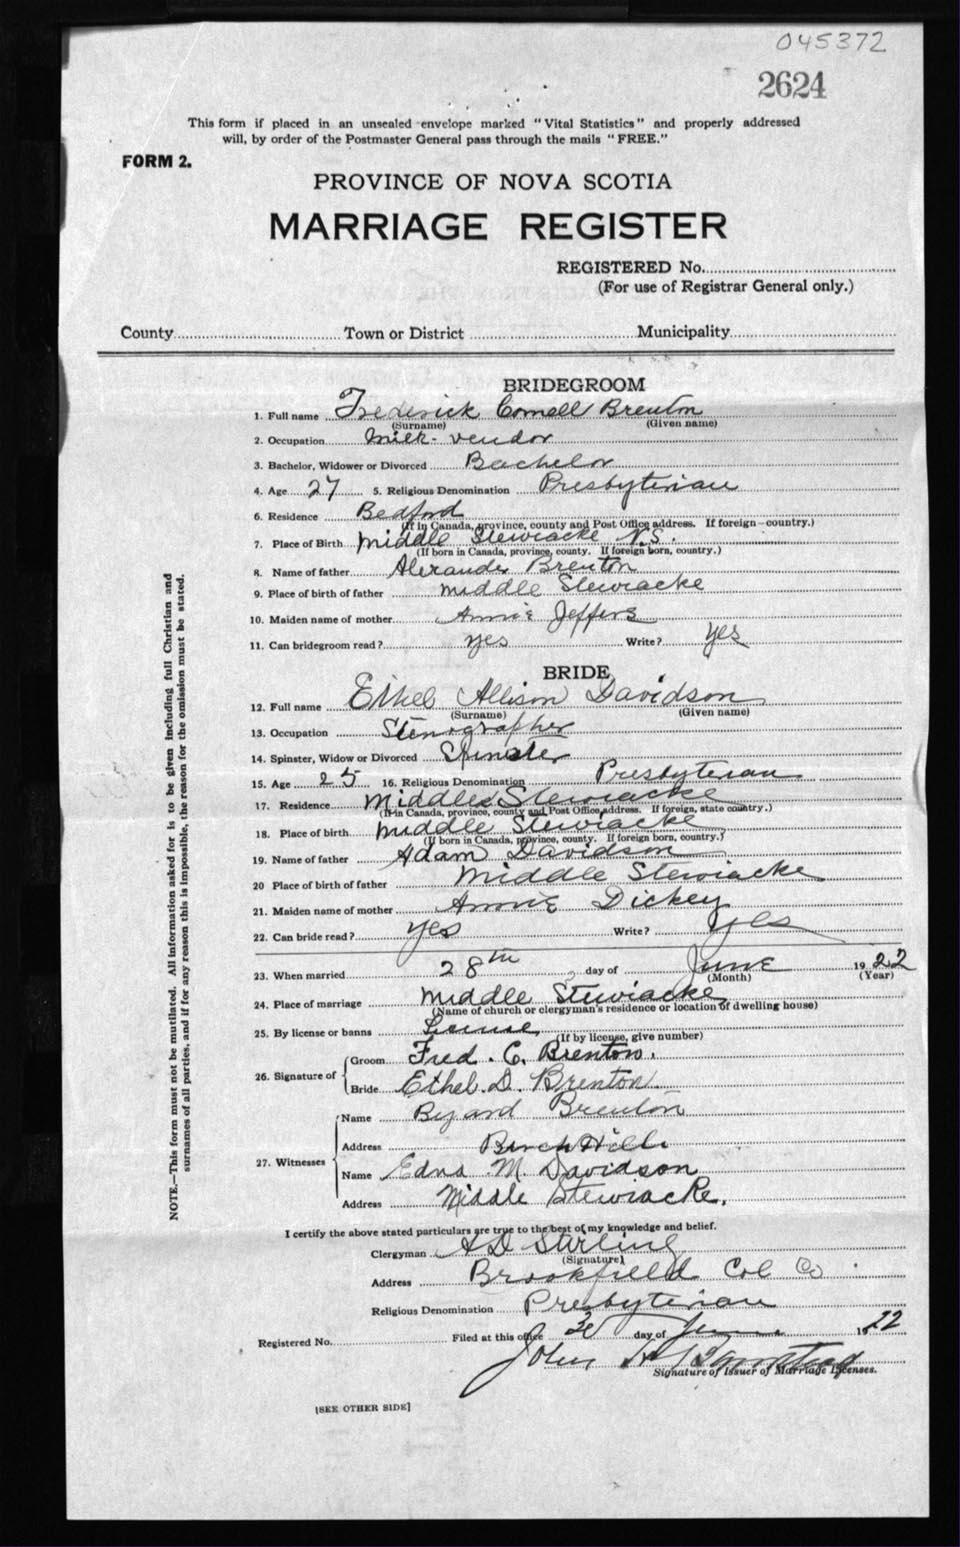 045372
2624
This form if placed in an unsealed envelope marked "Vital Statistics" and properly addressed
will, by order of the Postmaster General pass through the mails "FREE."
FORM 2.
PROVINCE OF NOVA SCOTIA
MARRIAGE REGISTER
REGISTERED No.
(For use of Registrar General only.)
County Town or District Municipality
BRIDEGROOM
1. Full name Frederick Cornell Brenton
(Surname) (Given name)
2. Occupation milk-vendor
3. Bachelor, Widower or Divorced Bachelor
4. Age 27 5. Religious Denomination Presbyterian
6. Residence Bedford
(If in Canada, province, county and Post Office address. If foreign—country.)
7. Place of Birth Middle Stewiacke N.S.
(If born in Canada, province, county. If foreign born, country.)
8. Name of father Alexander Brenton
9. Place of birth of father middle Stewiacke
10. Maiden name of mother Annie Jeffers
11. Can bridegroom read? yes Write? yes
BRIDE
12. Full name Ethel Allison Davidson
(Surname) (Given name)
13. Occupation Stenographer
14. Spinster, Widow or Divorced Spinster
15. Age 25 16. Religious Denomination Presbyterian
17. Residence Middle Stewiacke
(If in Canada, province, county and Post Office address. If foreign, state country.)
18. Place of birth middle Stewiacke
(If born in Canada, province, county. If foreign born, country.)
19. Name of father Adam Davidson
20 Place of birth of father Middle Stewiacke
21. Maiden name of mother Annie Dickey
22. Can bride read? yes Write? yes
23. When married 28th day of June 1922
(Month) (Year)
24. Place of marriage Middle Stewiacke
(Name of church or clergyman's residence or location of dwelling house)
25. By license or banns License
(If by license, give number)
26. Signature of Groom Fred. C. Brenton.
Bride Ethel. D. Brenton
27. Witnesses Name Byard Brenton
Address Birch Hill
Name Edna M Davidson
Address Middle Stewiacke.
I certify the above stated particulars are true to the best of my knowledge and belief.
Clergyman A D Stirling
(Signature)
Address Brookfield Col Co
Religious Denomination Presbyterian
Registered No. Filed at this office 30 day of June 1922
John H
Signature of Issuer of Marriage Licenses.
[SEE OTHER SIDE]
NOTE.—This form must not be mutilated. All information asked for is to be given including full Christian and
surnames of all parties, and if for any reason this is impossible, the reason for the omission must be stated.